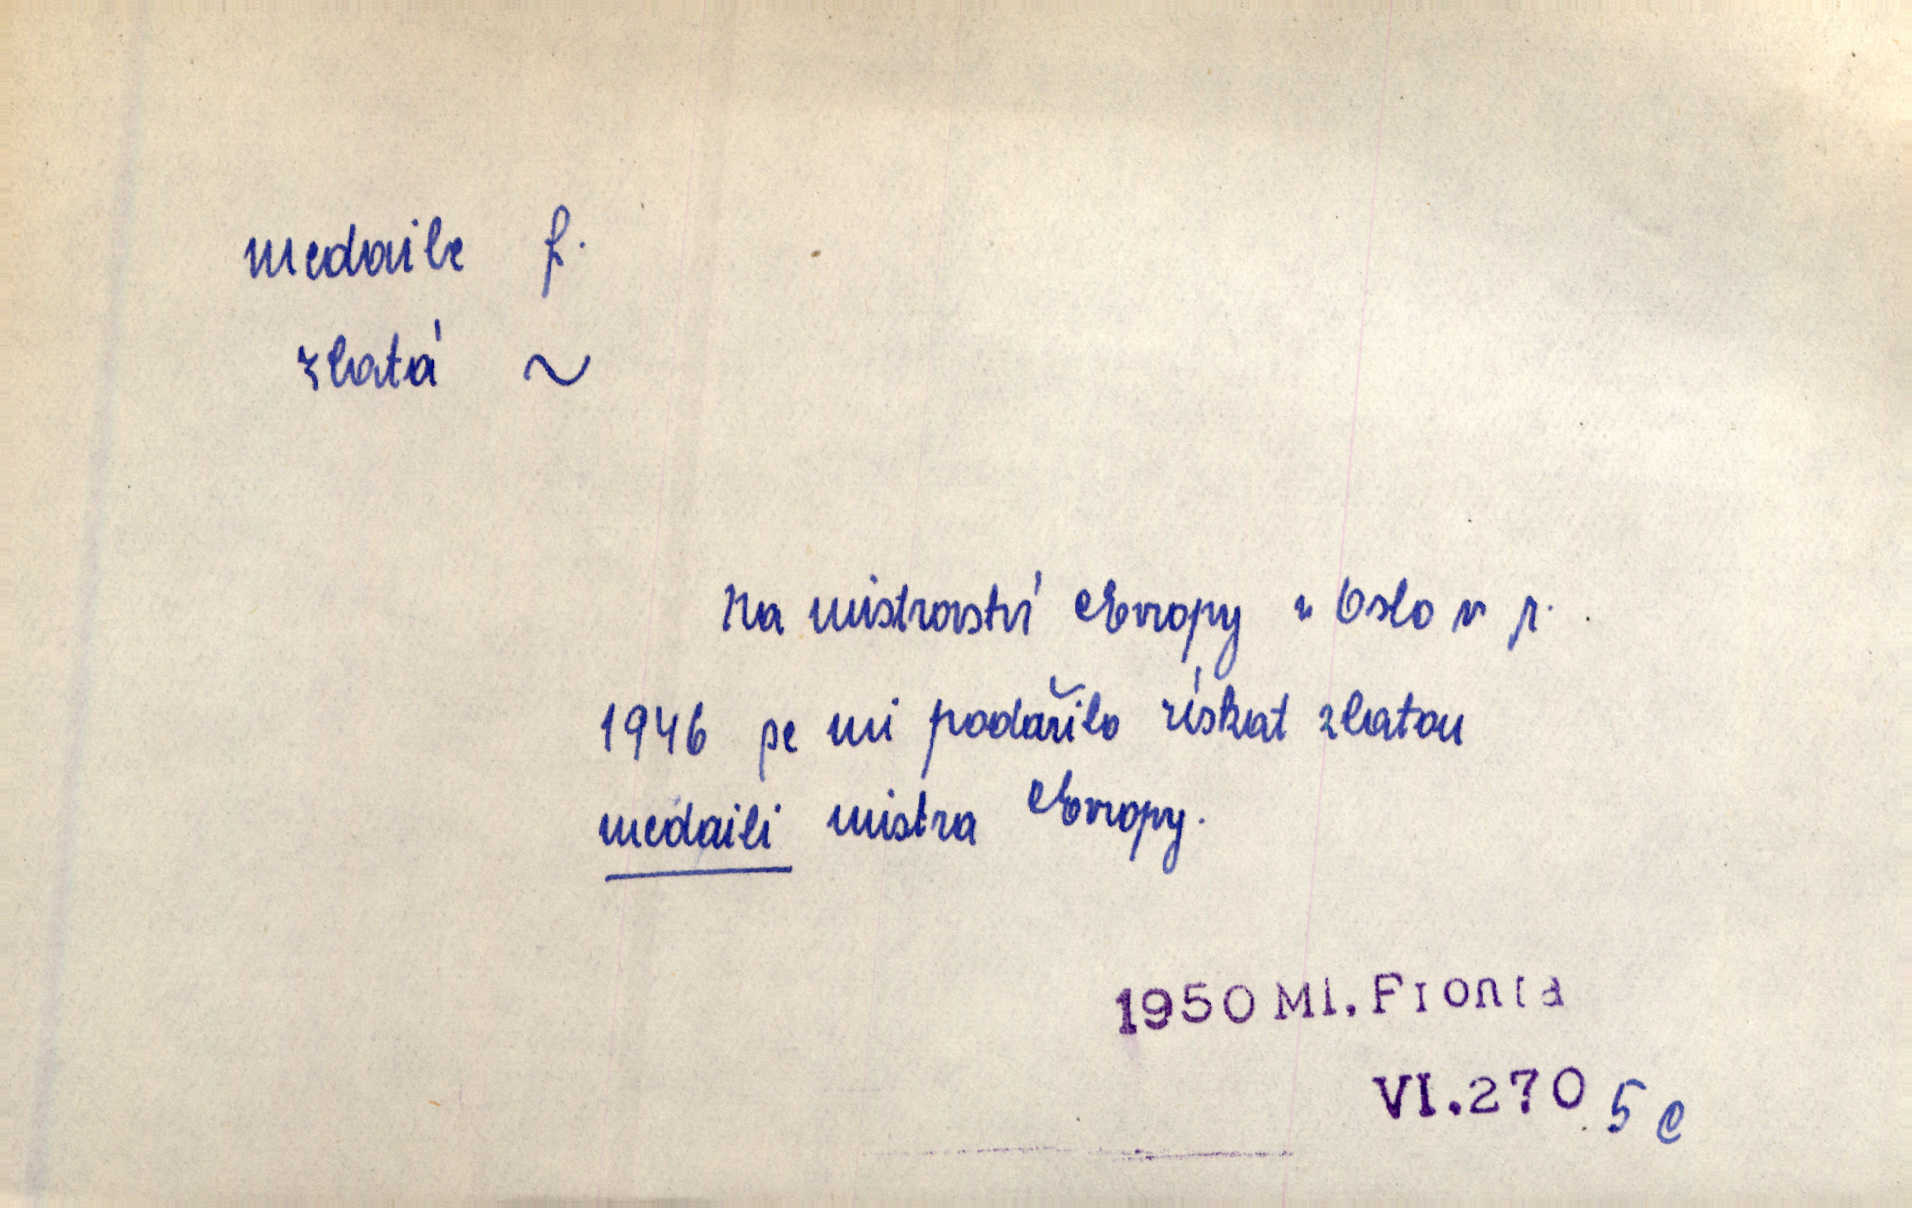 medaile f.
zlatá ~
Na mistrovství Evropy v Oslo v r.
1946 se mi podařilo získat zlatou
medaili mistra Evropy.
1950 Ml. Fronta
VI.270 5 c